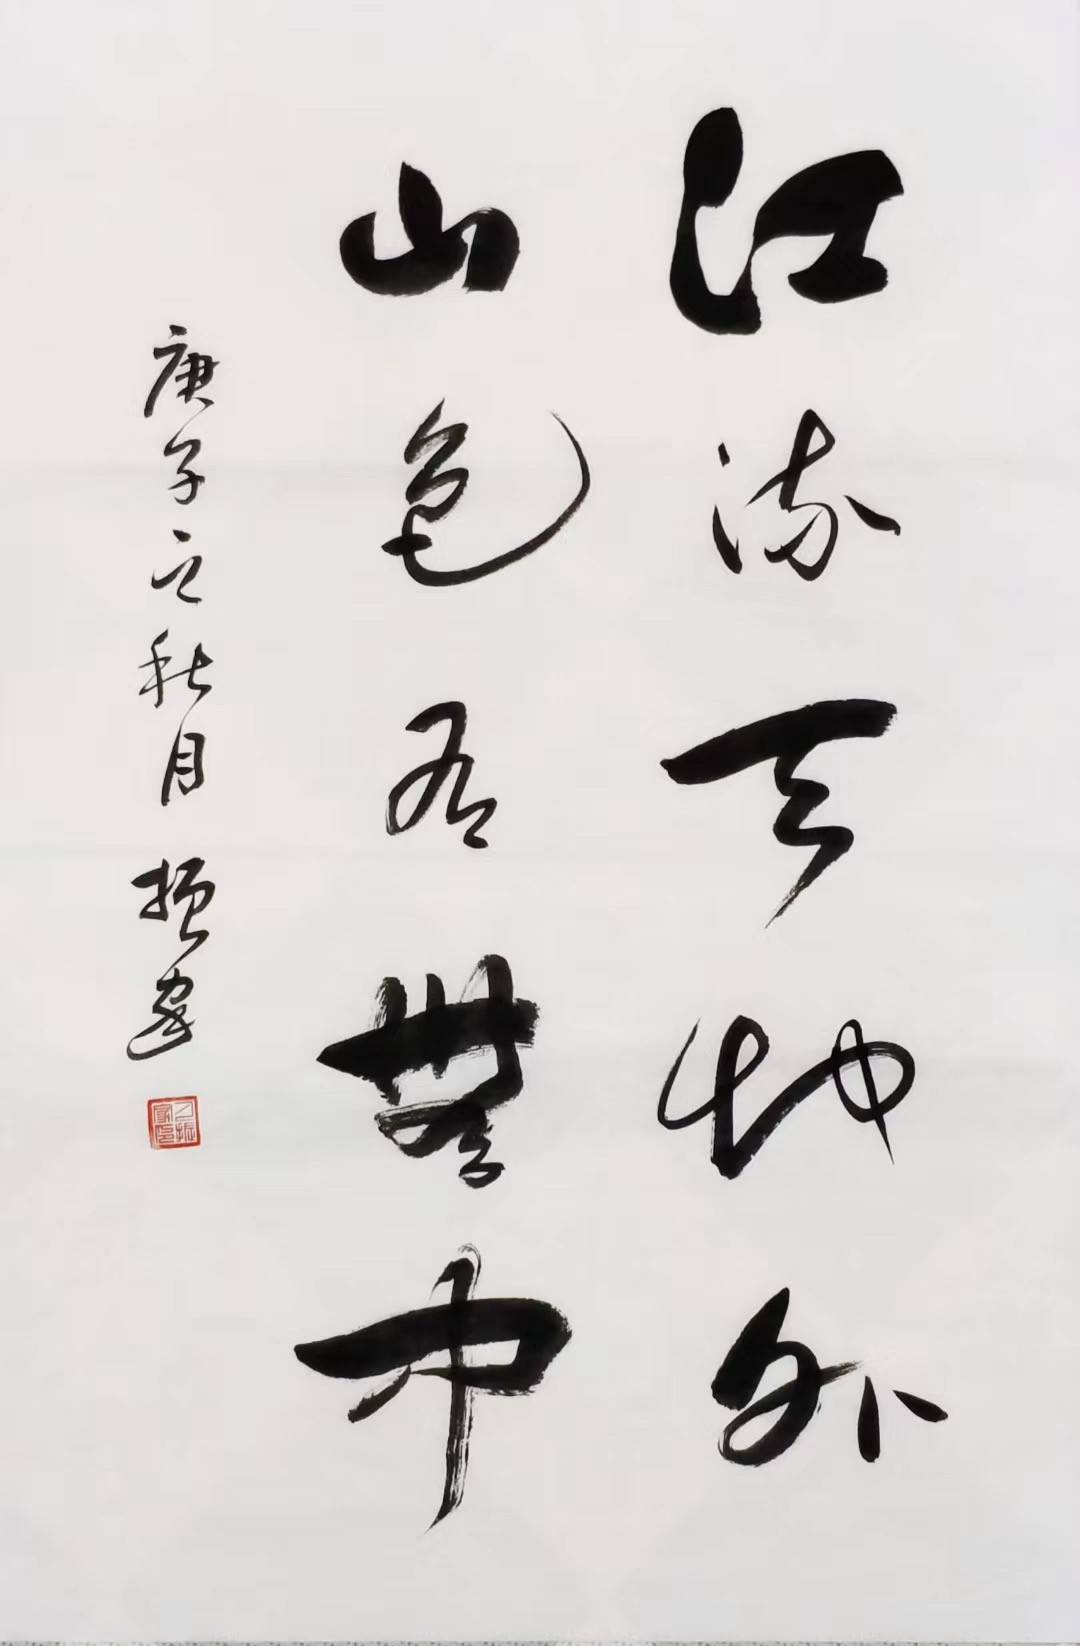 江流天地外
山色有無中
庚子之秋月 振家